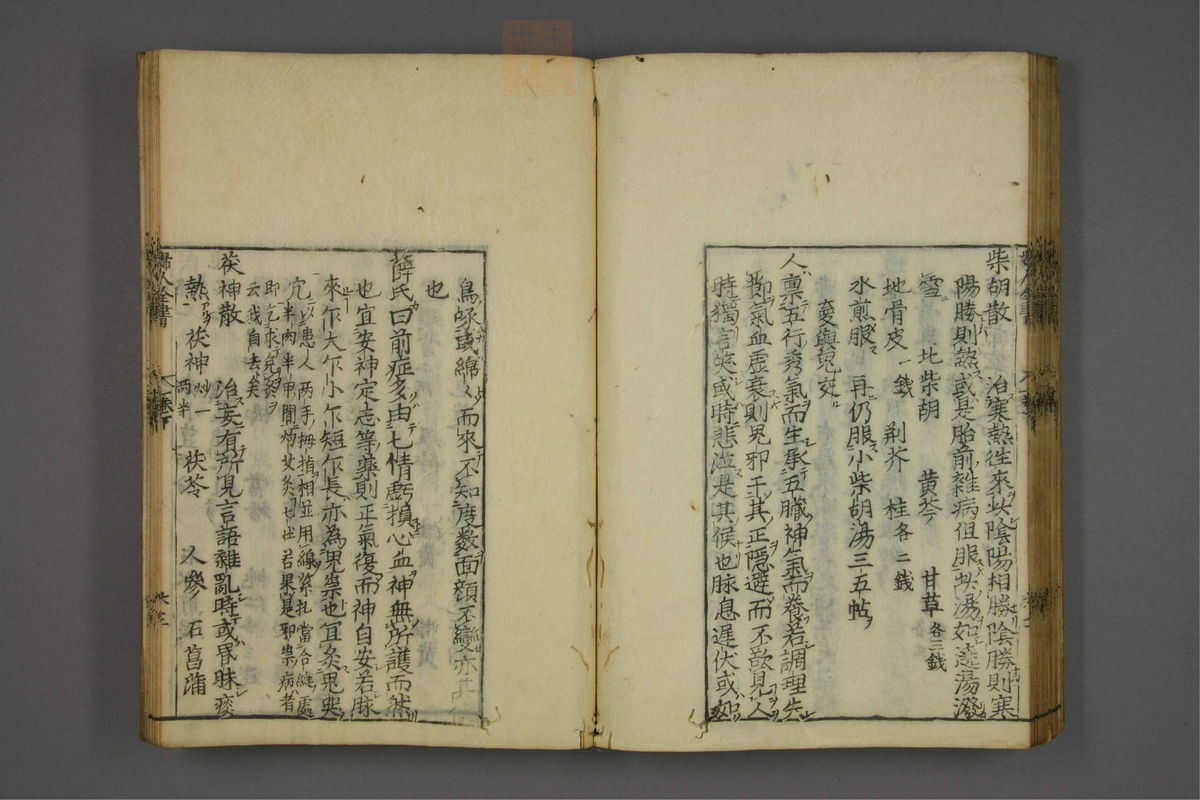 柴胡散　治寒熱徃來此陰陽相勝陰勝則寒
陽勝則熱或是胎前雜病但服此湯如澆湯潑
雪　北柴胡　黄芩　甘草各三錢
地骨皮一錢　荆芥　桂各二錢
水煎服　再仍服小柴胡湯三五帖
夢與鬼交
人稟五行秀氣而生承五臓神氣而養若調理失
節氣血虛衰則鬼邪干其正隱避而不欲見人
時獨言笑或時悲泣是其候也脉息遲伏或如
鳥啄或綿〻而來不知度數面顔不變亦此
也
薛氏曰前症多由七情虧損心血神無所護而然
也宜安神定志等藥則正氣復而神自安若脉
來乍大乍小乍短乍長亦為鬼祟也宜灸鬼哭
穴以患人兩手拇指相並用線緊扎當合縫處
半肉半甲間灼艾灸七壮若果是邪祟病者
即乞求免灸
云我自去矣
茯神散　治妄有所見言語雜亂時或昏昧痰
熱　茯神炒一兩半　茯苓　人參　石菖蒲